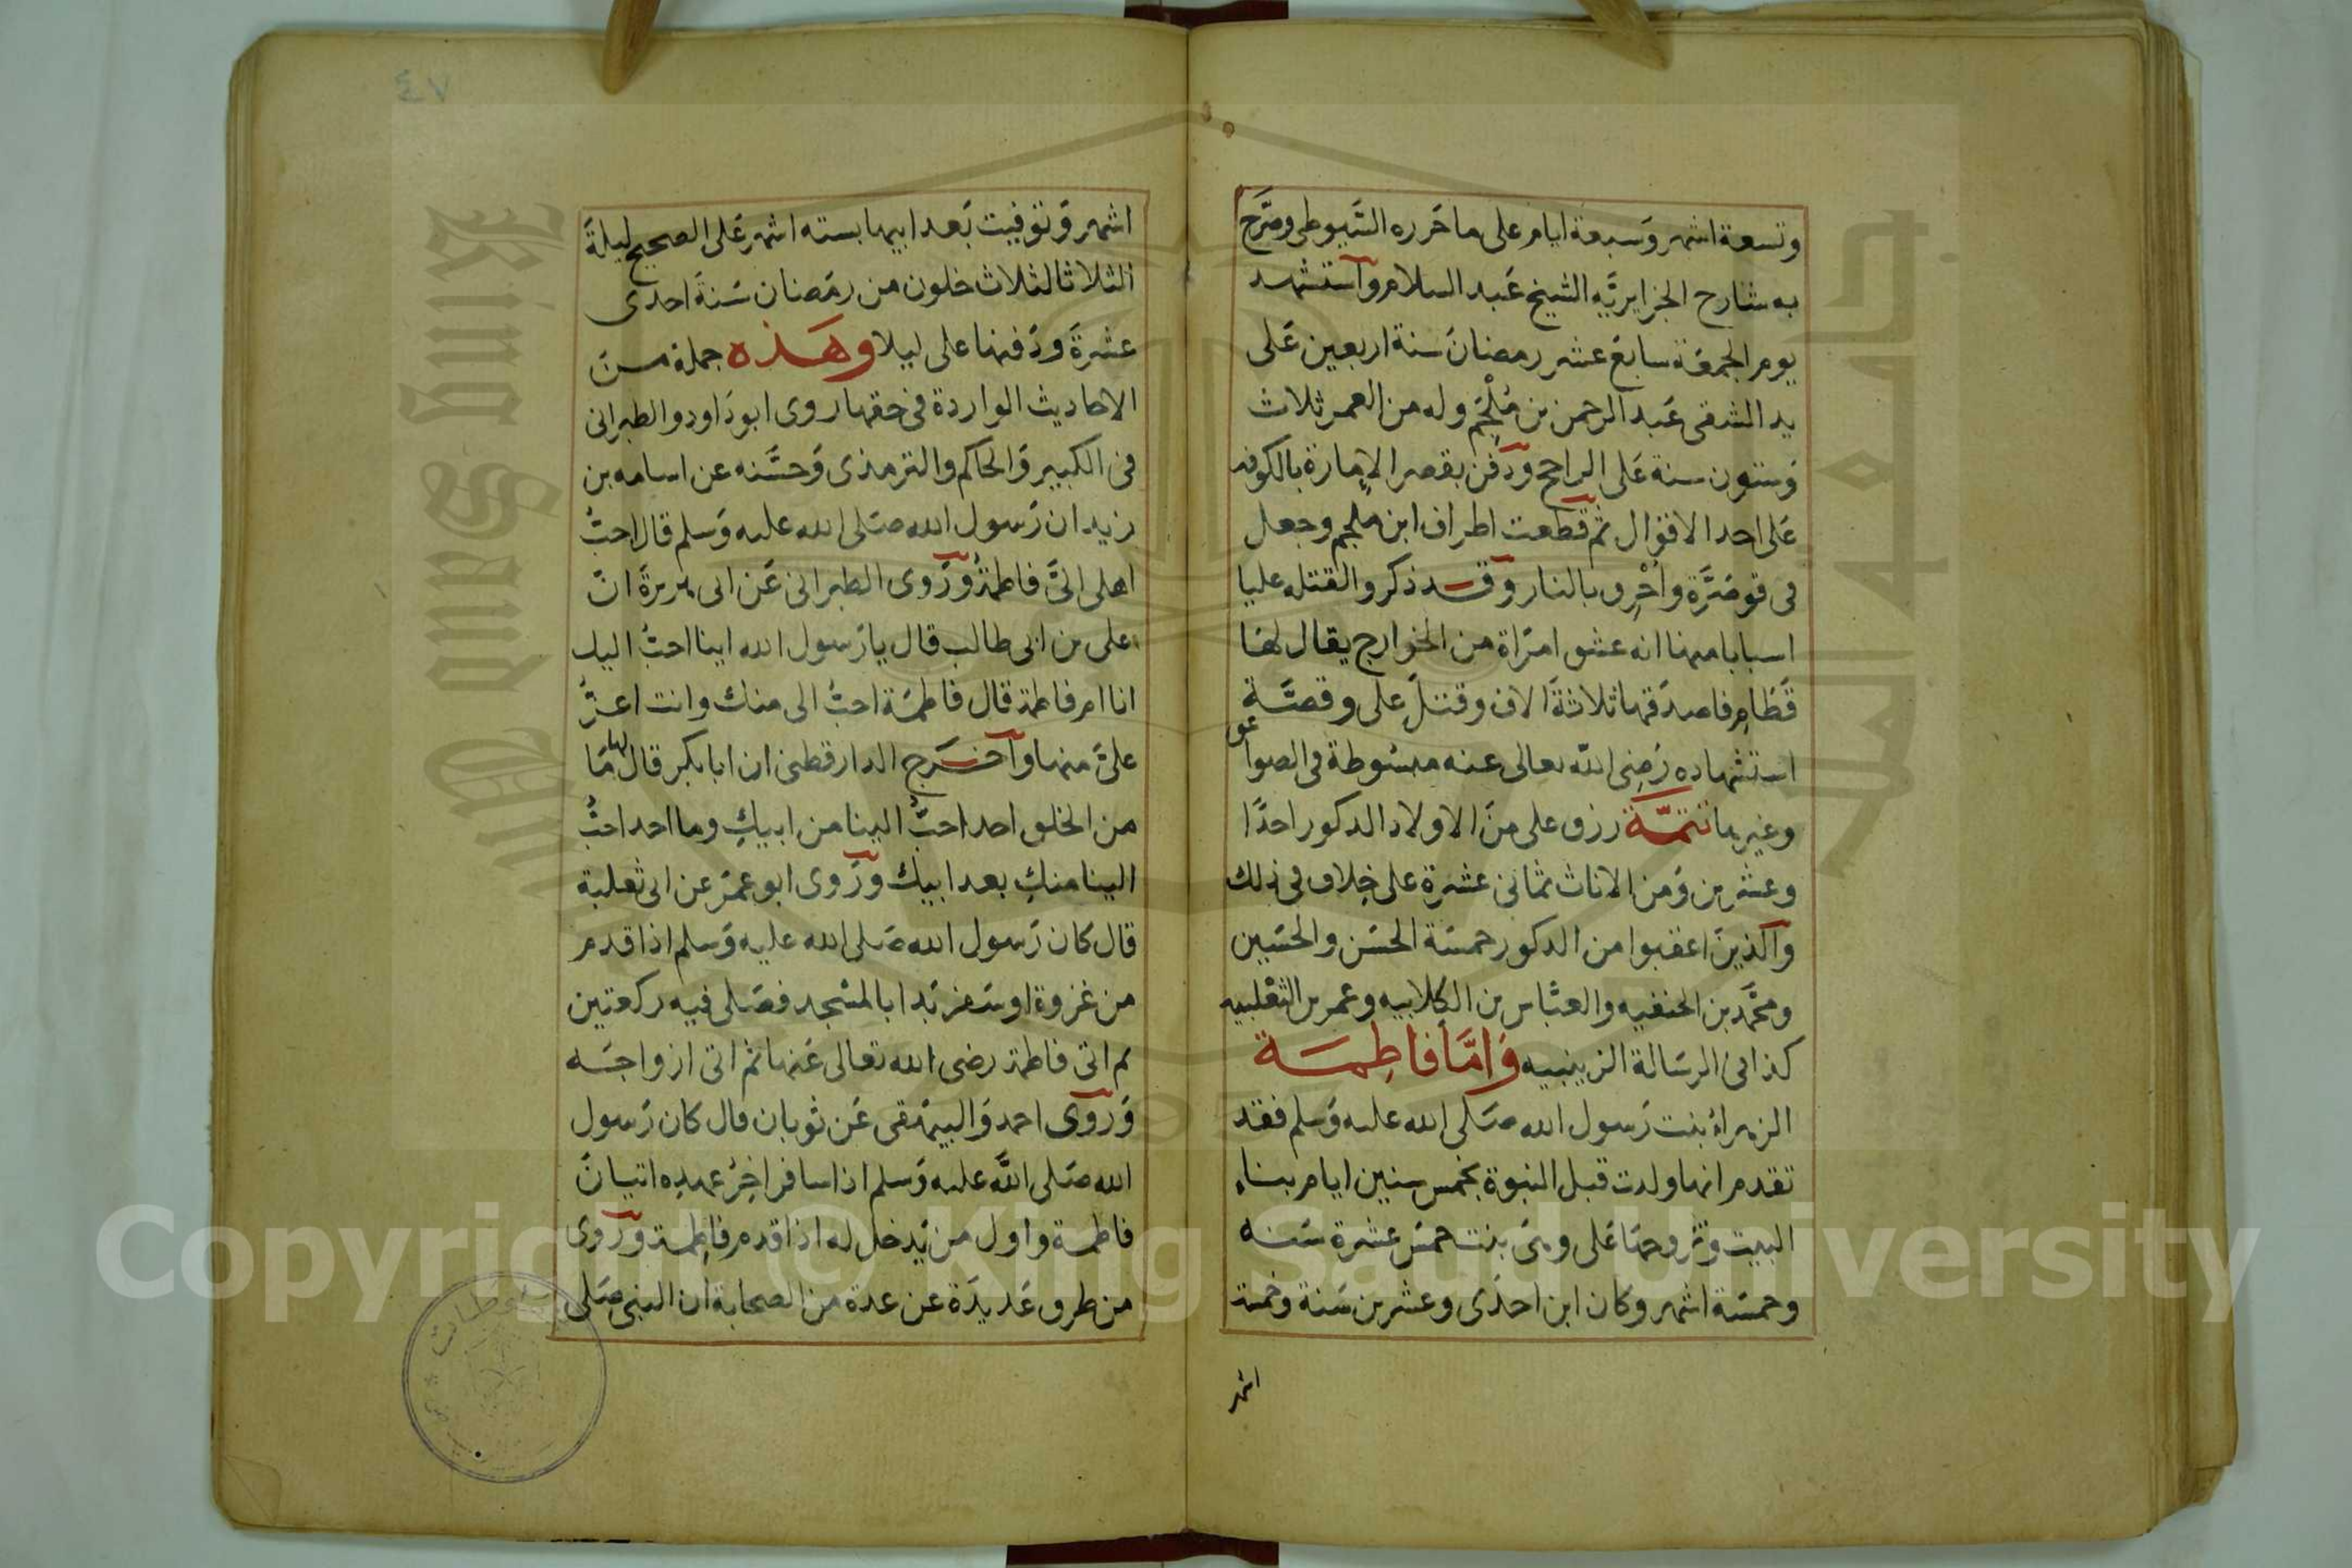 وتسعة اشهر وَسبعة ايام على ما حَرره السَّيوطى وصَرَّح
به شارح الجزايريَّه الشيخ عَبد السلام وآستشهد
يوم الجمعَة سابع عشر رمضانَ سنة اربعين عَلى
يد الشقى عَبد الرحمن بن مُلْجَم وله من العمر ثلاث
وَستون سنة عَلى الراجح ودَفن بقصر الإمارة بالكوفه
عَلى احد الاقوال ثم قطعت اطراف ابن ملجم وجعل
فى قوصَرَّة واُحْرِق بالنار وقد ذكروا لقتله عليا
اسبابا منها انه عشق امرَاة من الخوارج يقال لهَا
قَطَامِ فاصدَقها ثلاثةَ الاف وقتلَ على وقصَّة
استشهاده رَضِى الله تعالى عنه مبسُوطة فى الصواعق
وغيرها تتمَّة رزق على منَ الاولاد الدكور احدًا
وعشرين وَمن الاناث ثمانى عشرة على خِلاف فى ذلك
وآلذينَ اعقبوا من الدكور خمسَة الحسَن والحسَين
ومحَّمد بن الحنفيه والعبَّاس بن الكلابيه وعمر بن الثعْلبيه
كذا فى الرسَالة الزينبيه وَامَّا فاطِمَة
الزهراءُ بنت رَسول الله صَلى الله عليه وَسلم فقد
تقدم انها ولدت قبل النبوة بخمس سنين ايام بناءِ
البيت وتزوجهَا عَلى وهىَ بنت خمسَ عشرة سَنه
وخمسَة اشهر وكان ابن احدَى وعشرين سَنة وخمسة
اشهر
٤٧
اشهر وَتوفيت بَعد ابيها بسته اشهر عَلى الصحيح ليلةَ
الثلاثا لثلاث خلون من رمَضان سَنةَ احدى
عشرةَ ودَفنها على ليلا وهَذه جملة من
الاحاديث الواردة فى حقها روى ابو دَاود والطبرانى
فى الكبير وَالحاكم والترمذى وَحسَّنه عن اسامه بن
زيد ان رَسول الله صَلى الله عليه وَسلم قال احبُّ
اهلى الىَّ فاطمةُ ورَوى الطبرانى عَن ابى هريرةَ انَّ
على بن ابى طالب قال يا رَسول الله اينا احبُّ اليك
انا ام فاطمة قال فاطمَة احبُّ الى منك وانت اعزُّ
علىَّ منها وآخرَج الدارقطنى ان ابا بكر قال لها مَا
من الخلق احد احبُّ الينا من ابيكِ وما احد احبُّ
الينا منكِ بعد ابيك ورَوى ابو عمرَ عن ابى ثعلبة
قال كان رَسول الله صَلى الله عليه وَسلم اذا قدم
من غزوة او سَفر بَدا بالمسْجد فصَلى فيه ركعتين
ثم اتى فاطمة رضى الله تعالى عَنها ثم اتى ازواجَه
وَروَى احمد وَالبيهَقى عَن ثوبان قال كان رَسول
الله صَلى اللَّه عليه وَسلم اذا سافر اخِرُ عهدِه اتيانَ
فاطمة واول من يَدخل له اذا قدم فاطِمة ورَوى
من طرق عَديدَة عن عدة من الصحابة ان النبى صَلى
Copyright © King Saud University